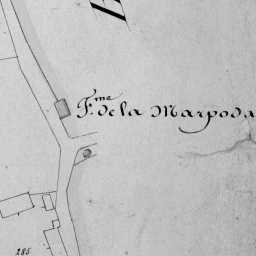 F.me de la Marpoda
285